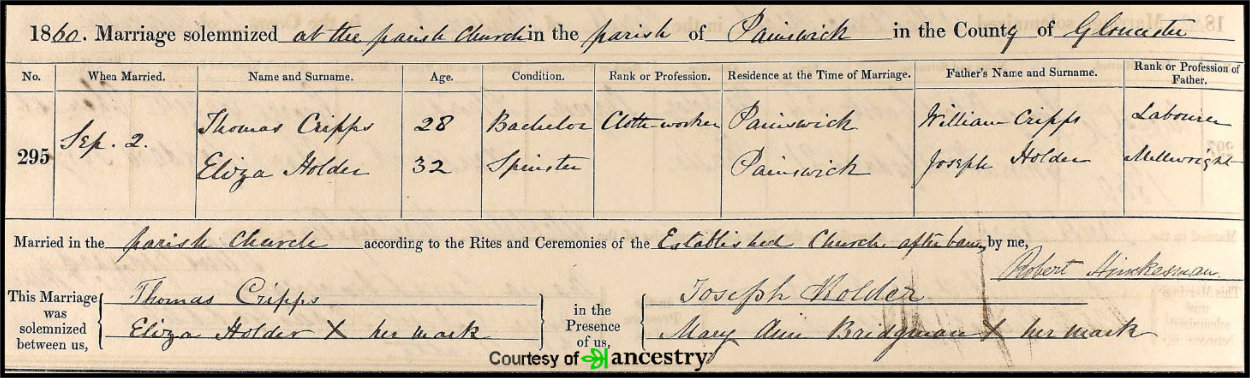 1860. Marriage solemnized at the parish church in the parish of Painswick in the County of Gloucester
No. When Married. Name and Surname. Age. Condition. Rank or Profession. Residence at the Time of Marriage. Father's Name and Surname. Rank or Profession of Father.
295 Sep. 2. Thomas Cripps 28 Bachelor Cloth-worker Painswick William Cripps Labourer
Eliza Holder 32 Spinster Painswick Joseph Holder Millwright
Married in the parish church according to the Rites and Ceremonies of the Established Church after banns by me,
Robert Hinkesman.
This Marriage was solemnized between us, Thomas Cripps in the Presence of us, Joseph Holder
Eliza Holder X her mark Mary Ann Bridgman X her mark
Courtesy of ancestry